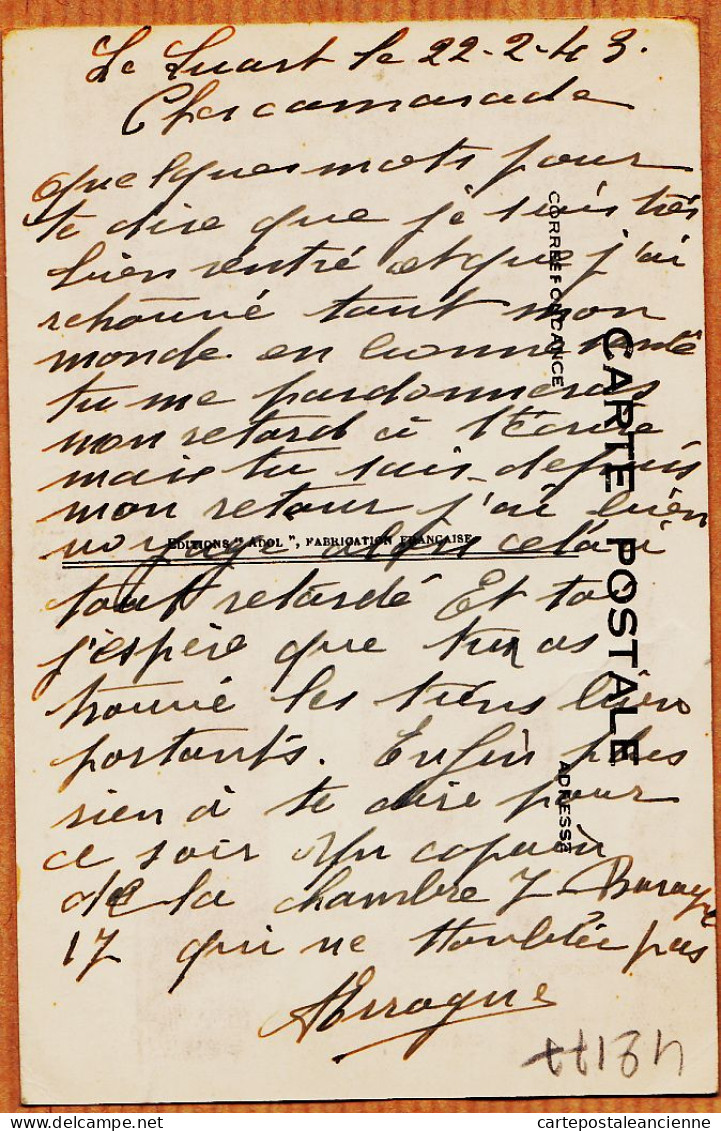 Le Luart le 22-2-43.
Cher camarade
quelques mots pour
te dire que je suis très
bien rentré et que j'ai
retrouvé tout mon
monde en bonne santé
tu me pardonneras
mon retard à t'écrire
mais tu sais depuis
mon retour j'ai bien
voyagé alors cela a
EDITIONS "ADOL", FABRICATION FRANÇAISE
tout retardé Et toi
j'espère que tu as
trouvé les tiens bien
portants. Enfin plus
rien à te dire pour
ce soir Un copain
de la chambre 7 Baraque
17 qui ne t'oublie pas
CORRESPONDANCE
CARTE POSTALE
ADRESSE
delcampe.net
cartepostaleancienne